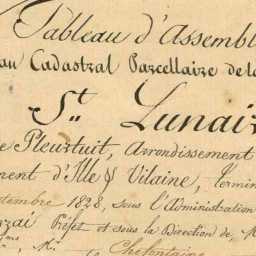 Tableau d'Assembl
au Cadastral Parcellaire de l
St. Lunai
e Pleurtuit, Arrondissement
ment d'Ille & Vilaine, Termin
tembre 1828, sous l'Administration
rzai Préfet et sous la Direction de, M
M.r Chefontaine